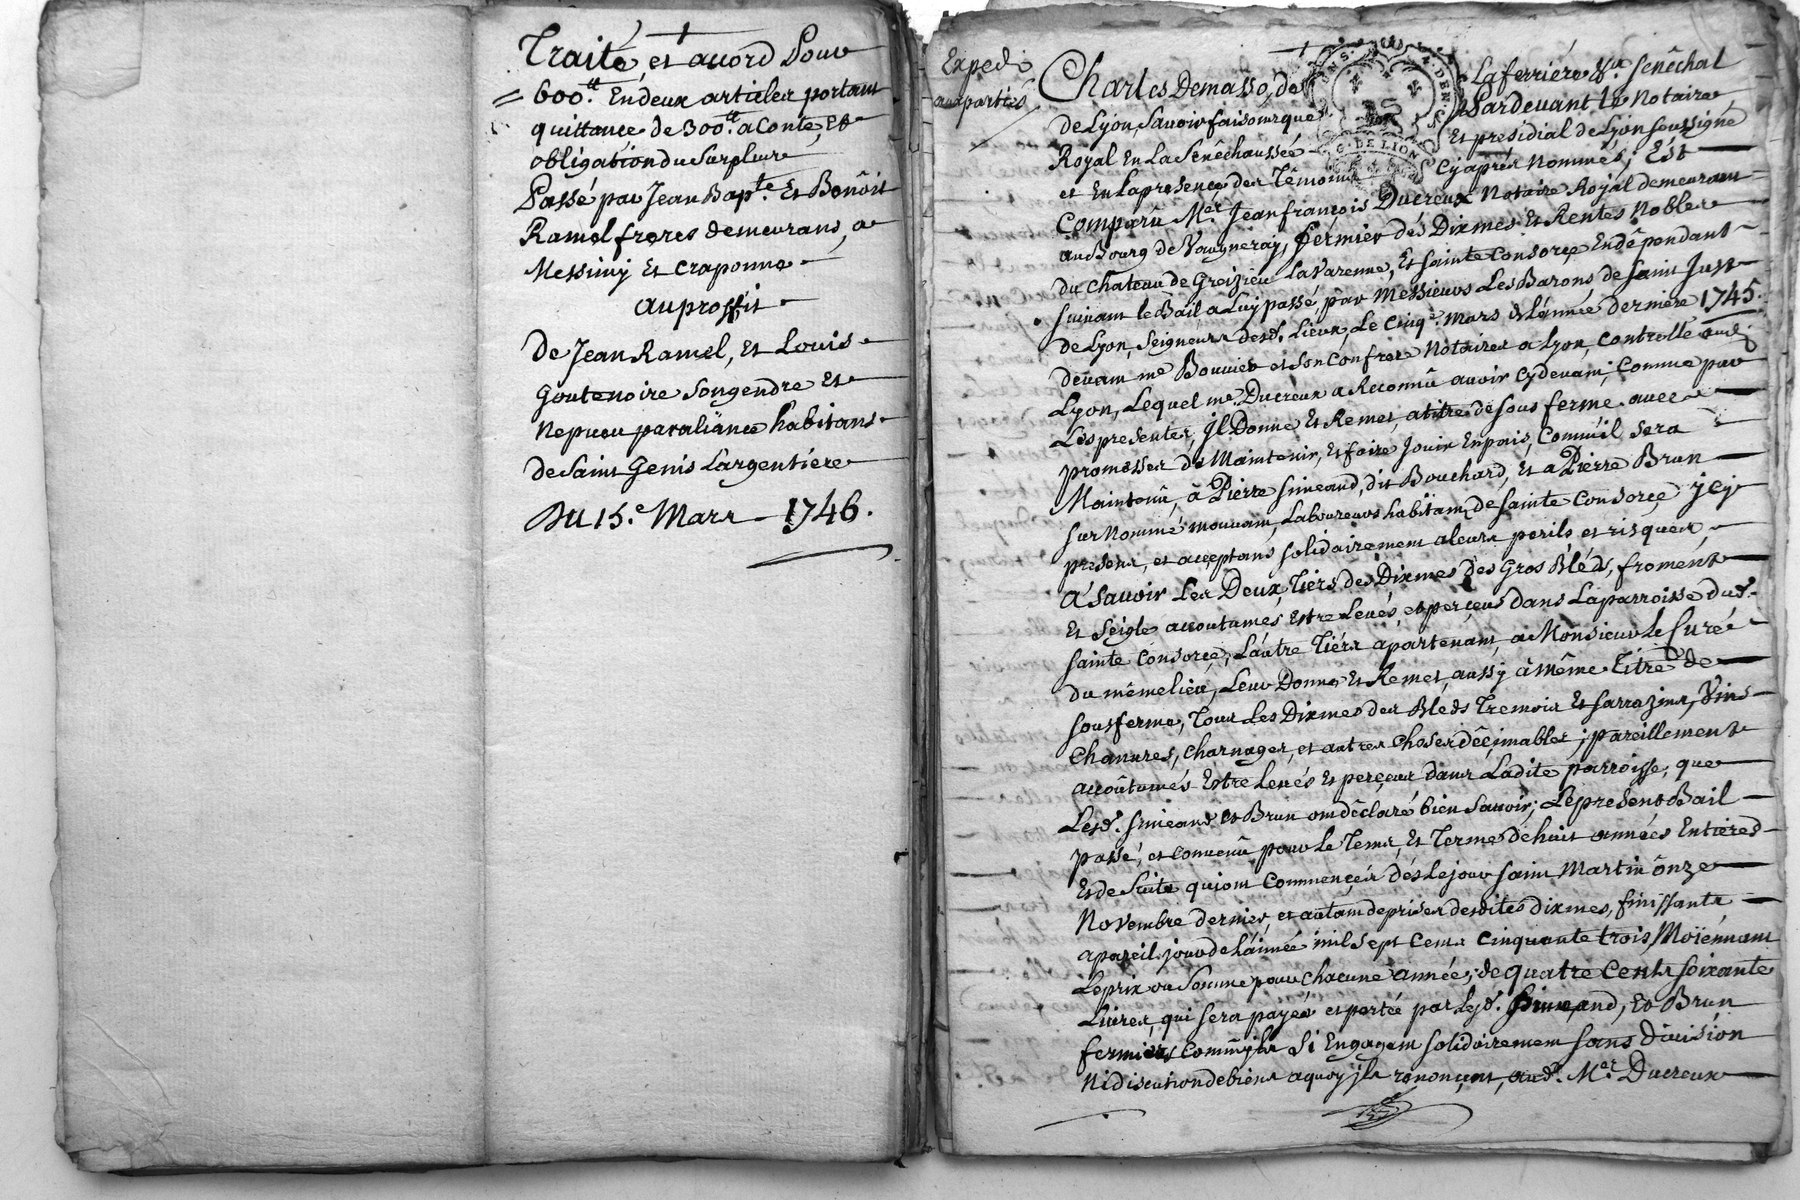 Traité, et accord Pour
600.tt En deux articles portant
quittance de 300.tt a Conte, Et
obligation du Surplus
Passé par Jean Bap.te Et Benôit
Ramel freres demeurans, a
Messimy Et Craponne
au proffit
de Jean Ramel, Et Louis
Goutenoire Son gendre Et
Nepueu par aliance habitans
de Saint Genis Largentiere
Du 15.e Mars 1746.
Exped.
aux parties
Charles Demasso, de Laferriére Sénêchal
de Lyon, Sauoir faisons que Pardevant Le Notaire
Royal En La Senêchaussée Et presidial de Lyon soussigné
et En La presence des Têmoins Cy aprés Nommés; Est
Comparû M.er Jean françois Ducreux Notaire Royal demeurant
au Bourg de Vaugneray, fermier dés Dixmes Et Rentes Nobles
du Chateau de Greizieu Lavarenne, Et Sainte Consorce En dêpendant
suiuant le Bail a Luy passé, par Messieurs Les Barons de Saint Just
de Lyon, Seigneurs desd. Lieux, Le Cinq.e Mars de L'année derniere 1745.
deuant m.e Bouuier et Son Confrere Notaires a Lyon, Controllé aud.
Lyon, Lequel m.e Ducreux a Reconnû auoir Cydeuant, Comme par
Les presentes, Jl Donne Et Remet, a titre de sous ferme auec
promesses de Maintenir, Et faire Jouir En pais, Comm'il Sera
Maintenû, à Pierre Simeand, dit Bouchard, Et a Pierre Brun
sur Nommé mouuant, Laboureurs habitans de Sainte Consorce, Jcy
presens, et acceptans solidairement a leurs perils et risques,
A Sauoir Les Deux Tiers des Dixmes des Gros Bléds, froment
Et Seigle accoutumés Estre Leués, et perçeus dans La parroisse dud.
Sainte Consorce, L'autre Tiers apartenant, a Monsieur Le Curé
du même lieu, Leur Donne Et Remet, aussy à même Titre de
sous ferme, Tous Les Dixmes des Bleds Tremois Et Sarrazins, Vins
Chanures, Charnages, et autres Choses dêcimables; pareillement
accoûtumés Estre Leués Et perçeus dans Ladite parroisse, que
Lesd. Simeand et Brun ont dêclaré bien Sauoir; Le present Bail
passé, et Conuenû pour Le Tems, Et Terme de huit années Entieres
Et de Suite qui ont Commencées dés Le jour Saint Martin ônze
Novembre dernier, et autant de prises desdites dixmes, finissants
a pareil jour de L'année mil Sept Cents Cinquante trois, Moïennant
Le prix ou Somme pour Chacune année, de quatre Cents Soixante
Liures, qui Sera payée et portée par Lesd. Simeand, Et Brun
fermiers Comm'jls S'i Engagent solidairement sans Diuision
Ni discution de biens a quoy jls renonçent, aud. M.er Ducreux